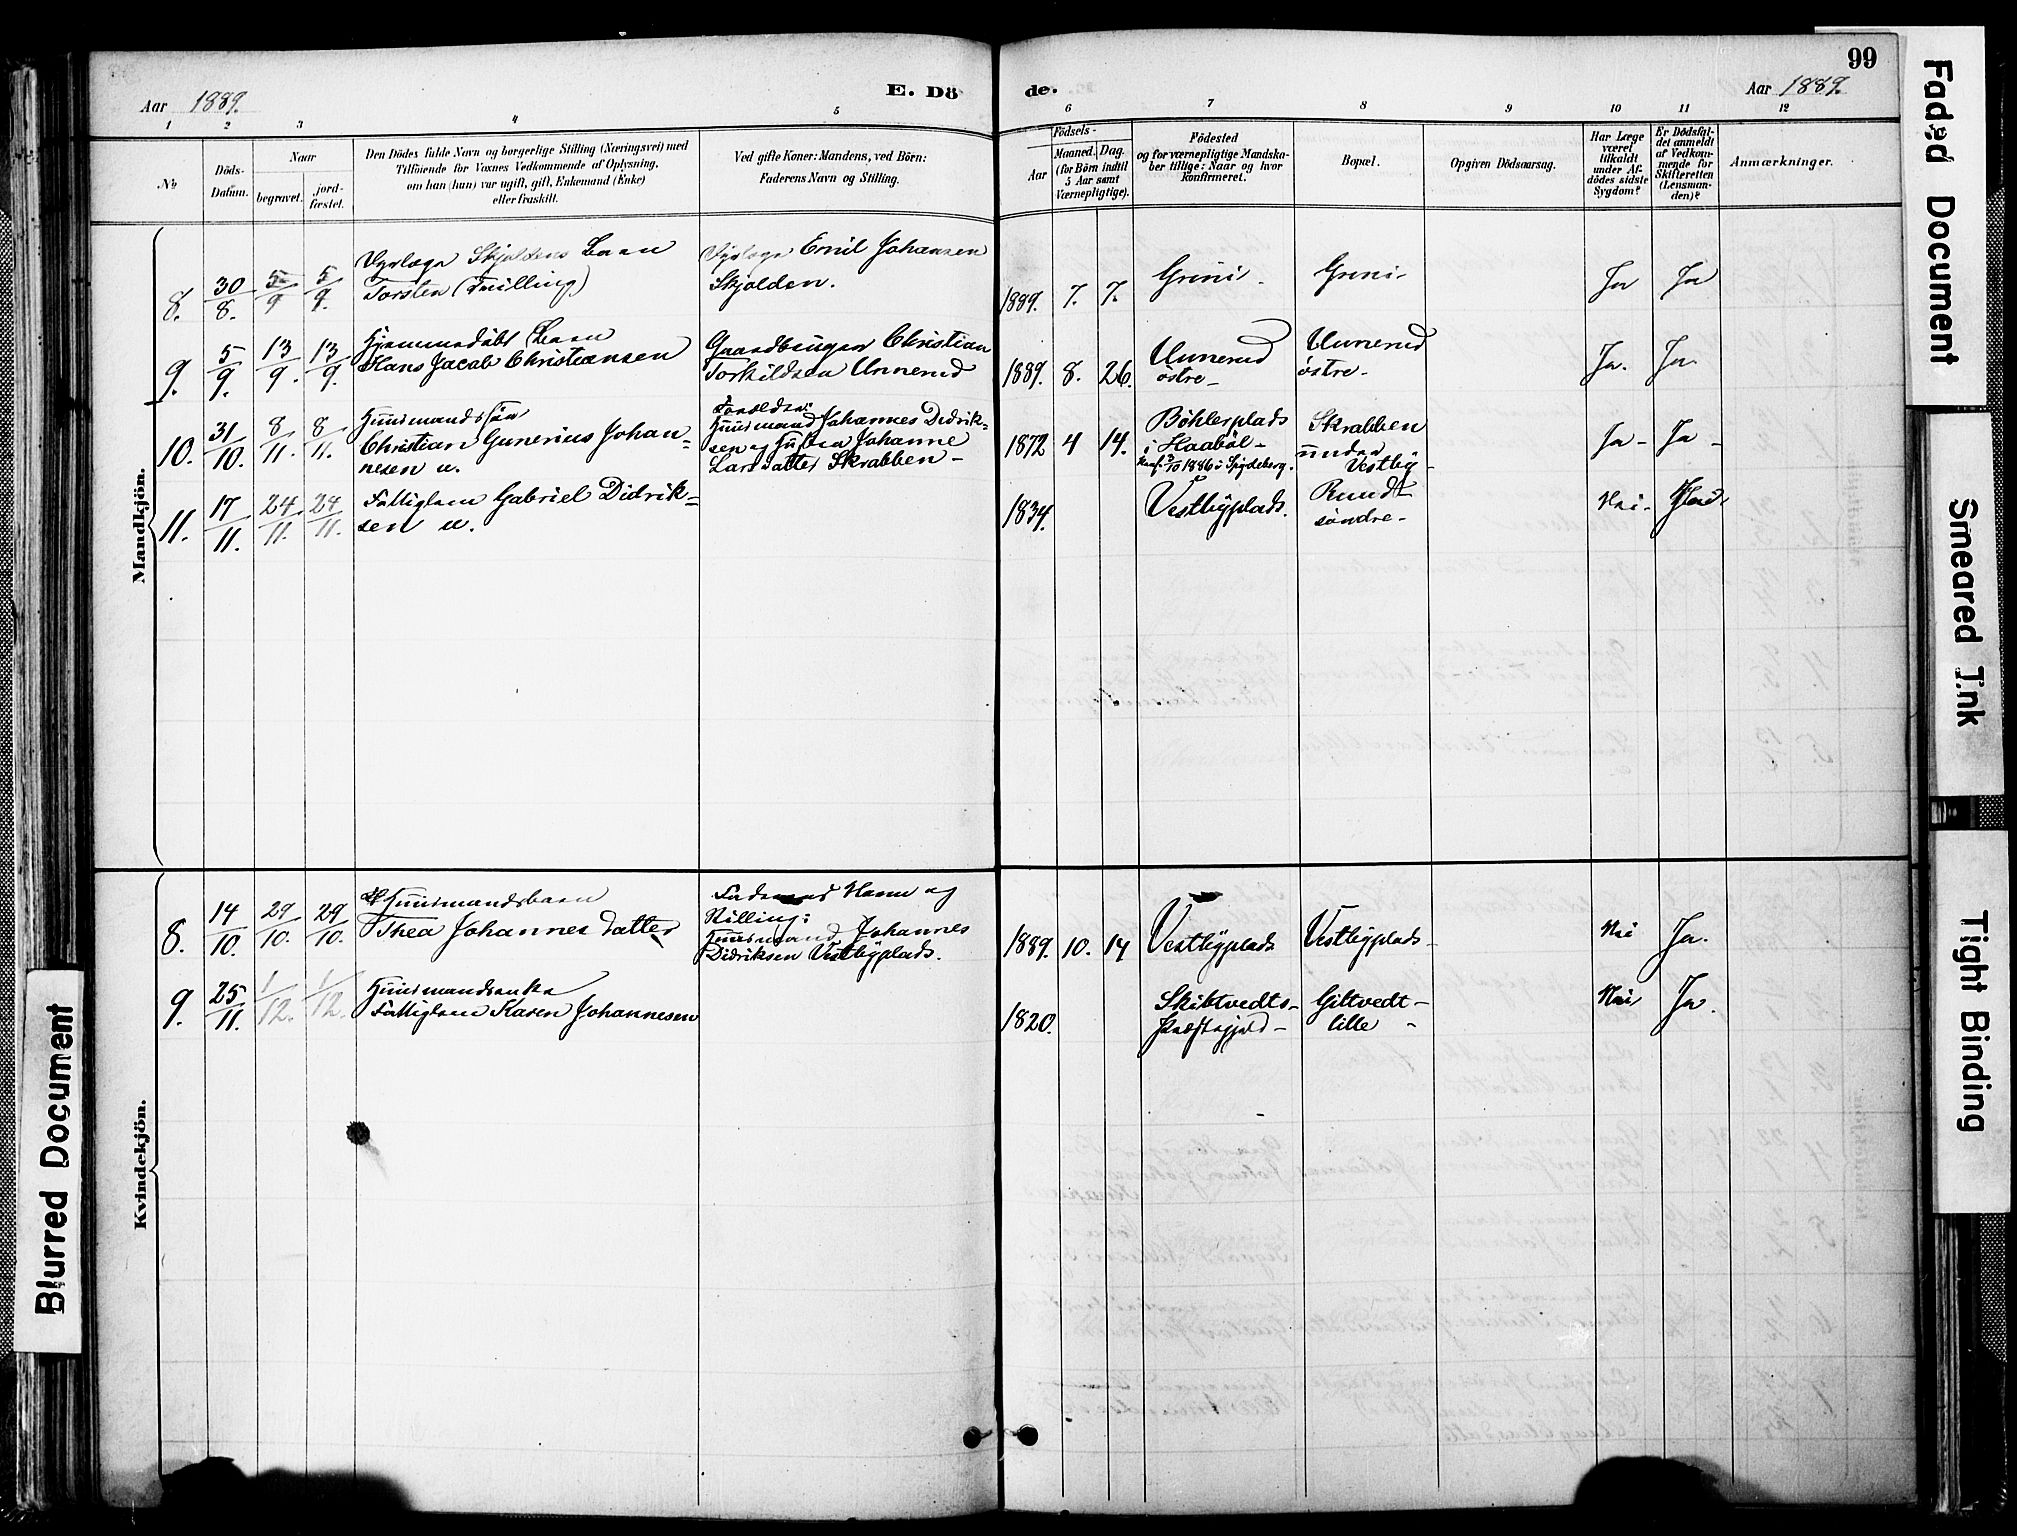 Aar 1889.
E. Dö
1 2 3 4 5
No
Döds-
Datum.
Naar
begravet.
jord-
fæstet.
Den Dödes fulde Navn og borgerlige Stilling (Næringsvei) med
Tilföiende for Voxnes Vedkommende af Oplysning,
om han (hun) var ugift, gift, Enkemand (Enke)
eller fraskilt.
Ved gifte Koner: Mandens, ved Börn:
Faderens Navn og Stilling.
Mandkjön.
8. 30/8. 5/9 5/9.
Dyrlæge Skjoldens Barn
Torsten (Trilling)
Dyrlæge Emil Johansen
Skjolden.
9. 5/9. 13/9. 13/9.
Hjemmedøbt Barn
Hans Jacob Christiansen
Gaardbruger Christian
Torkildsen Unnerud
10. 31/10. 8/11. 8/11.
Huusmandssøn
Christian Gunerius Johan-
nesen u.
Forældre:
Huusmand Johannes Didrik-
sen og Hustru Johanne
Larsdatter Skrabben -
11. 17/11. 24/11. 24/11.
Fattiglem Gabriel Didrik-
sen u.
Kvindekjön.
8. 14/10. 29/10. 29/10.
Huusmandsbarn
Thea Johannesdatter
Faderens Navn og
Stilling:
Huusmand Johannes
Didriksen Vestbyplads.
9. 25/11. 1/12. 1/12.
Huusmandsenke
Fattiglem Karen Johannesen
99
de.
Aar 1889.
6 7 8 9 10 11 12
Födsels-
Aar
Maaned.
Dag.
(for Börn indtil
5 Aar samt
Værnepligtige).
Födested
og for værnepligtige Mandska-
ber tillige: Naar og hvor
konfirmeret.
Bopæl.
Opgiven Dödsaarsag.
Har Læge
været
tilkaldt
under Af-
dödes sidste
Sygdom?
Er Dödsfal-
det anmeldt
af Vedkom-
mende for
Skifteretten
(Lensman-
den)?
Anmærkninger.
1889. 7. 7. Grini - Grini - Ja Ja
1889. 8. 26. Unnerud
østre - Unnerud
østre - Ja. Ja.
1872 4 14. Bøhlerplads
i Haabøl -
Konf. 3/10 1886 i Spydeberg.
Skrabben
under
Vestby - Ja - Ja -
1834. Vestbyplads. Rund
søndre - Nei -
1889. 10. 14 Vestbyplads Vestbyplads - Nei Ja.
1820. Skibtvedts-
Præstegjeld -
Giltvedt -
lille - Nei Ja.
Faded Document
Smeared Ink
Tight Binding
Blurred Document